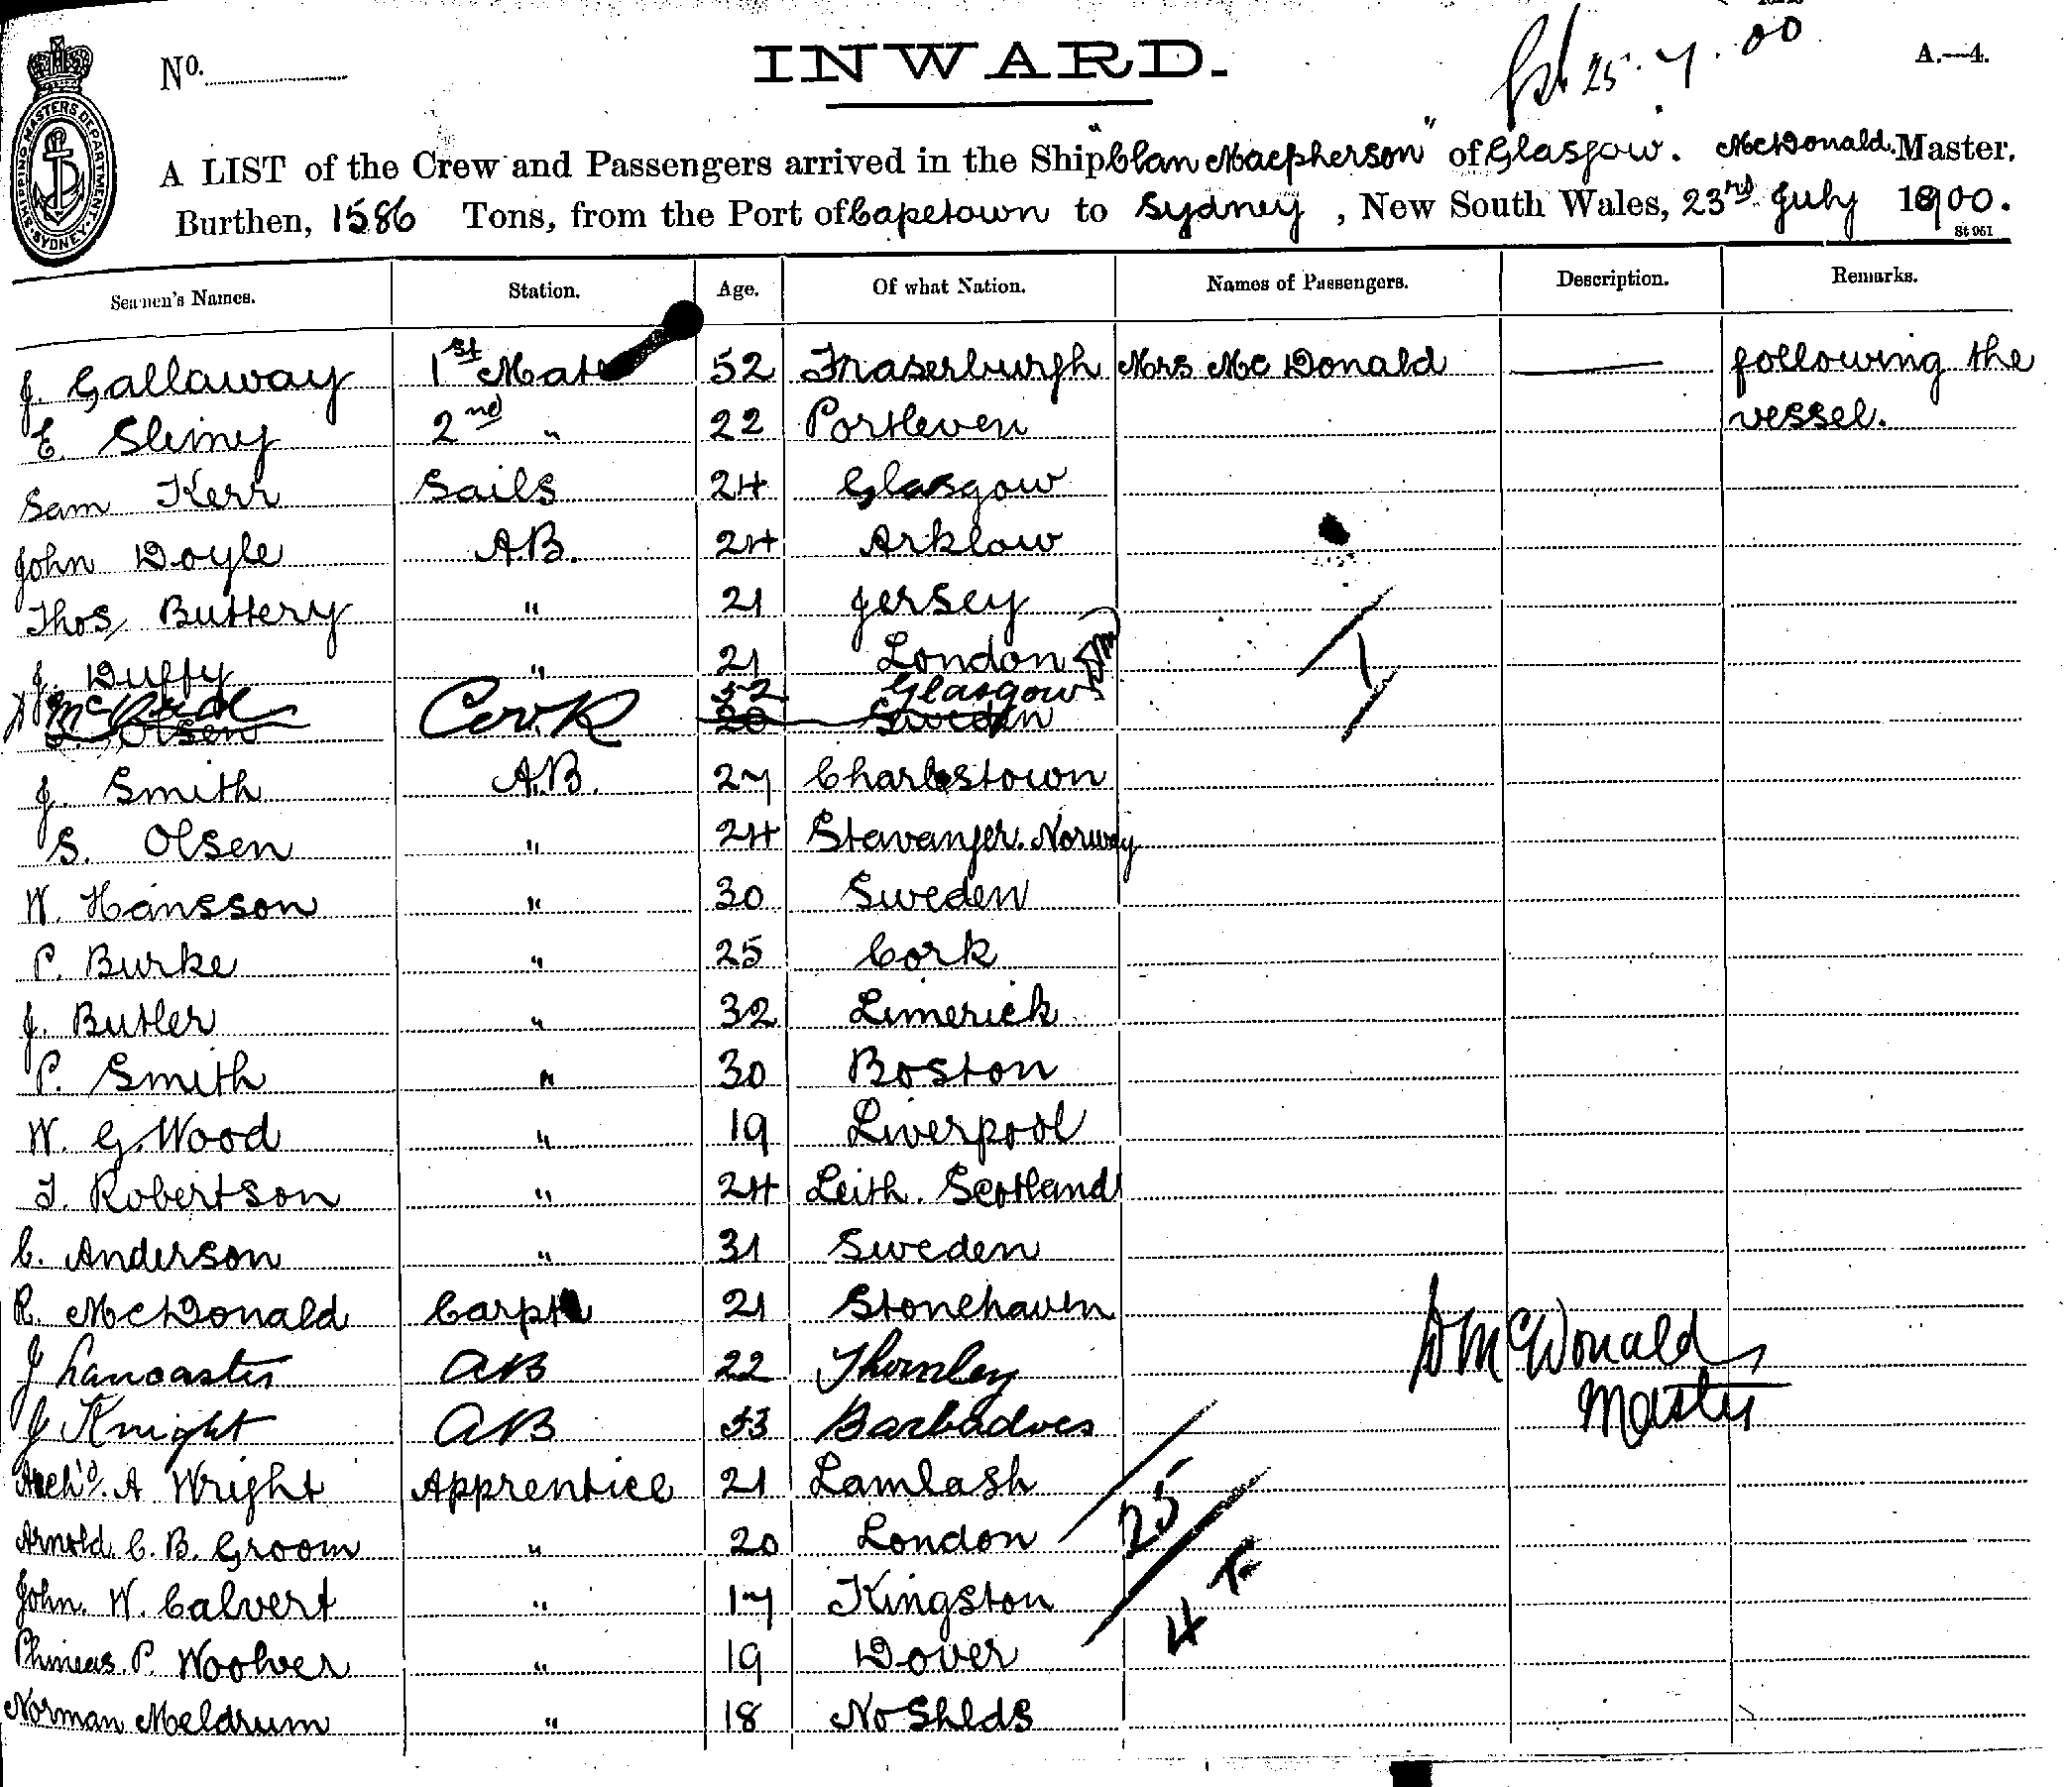 No.
INWARD.
25.7.00
A.—4.
SHIPPING MASTERS DEPARTMENT. SYDNEY
A LIST of the Crew and Passengers arrived in the Ship "Clan Macpherson" of Glasgow. McDonald. Master,
Burthen, 1586 Tons, from the Port of Capetown to Sydney, New South Wales, 23rd July 1900.
St 961
Seamen's Names. Station. Age. Of what Nation. Names of Passengers. Description. Remarks.
J. Gallaway 1st Mate 52 Fraserburgh Mrs McDonald — following the
E. Sleiny 2nd " 22 Portleven vessel.
Sam Kerr Sails 24 Glasgow
John Doyle A.B. 24 Arklow
Thos Buttery " 21 Jersey
J. Duffy " 21 London
Cook 52 Glasgow
Olsen 20 Sweden
J. Smith A.B. 27 Charlestown
S. Olsen " 24 Stavanger. Norway
W. Hansson " 30 Sweden
P. Burke " 25 Cork
J. Butler " 32 Limerick
P. Smith " 30 Boston
W. G. Wood " 19 Liverpool
T. Robertson " 24 Leith. Scotland
C. Anderson " 31 Sweden
R. McDonald Carptr 21 Stonehaven
J Lancaster AB 22 Thornley
D McDonald
Master
J Knight AB 53 Barbadoes
Archd. A Wright Apprentice 21 Lamlash
Arnold C. B. Groom " 20 London
25
John. W. Calvert " 17 Kingston
4
Phineas. P. Woolver " 19 Dover
Norman Meldrum " 18 No Shlds